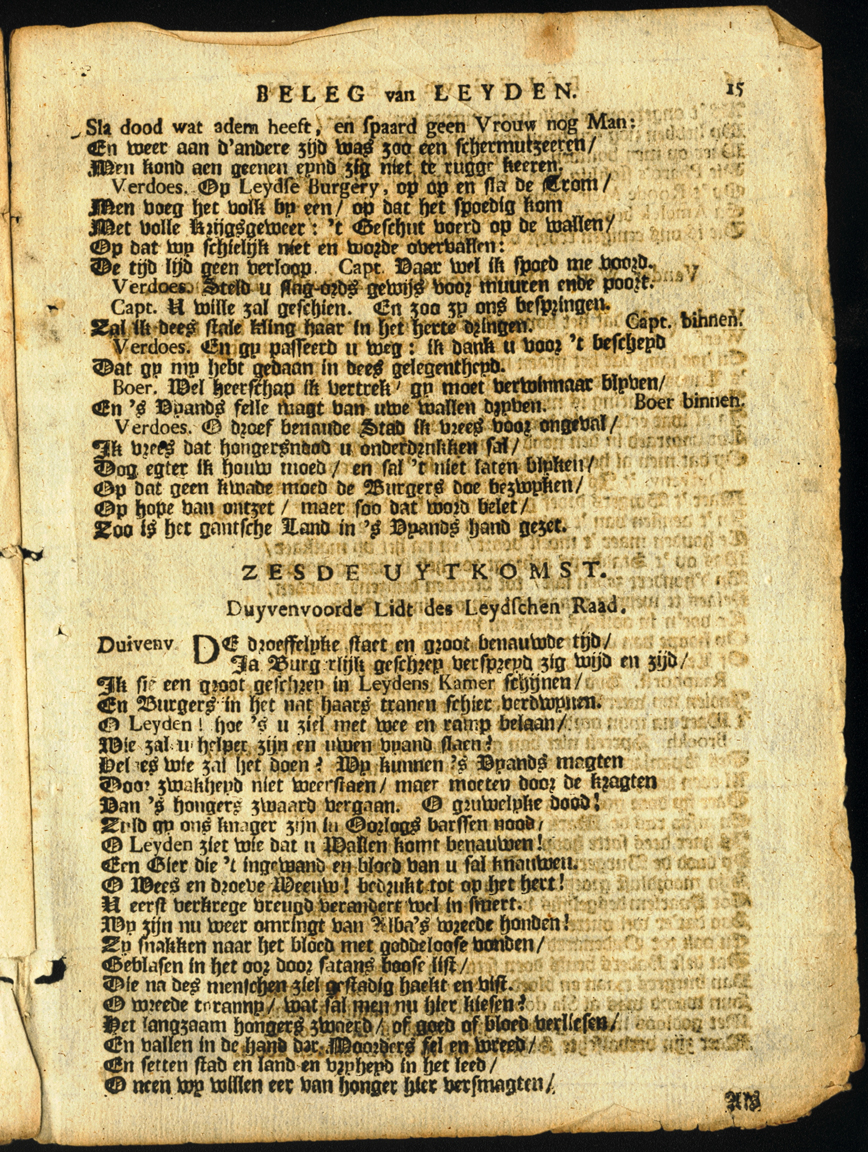 BELEG van LEYDEN. 15
Sla dood wat adem heeft, en spaard geen Vrouw nog Man:
En weer aan d'andere zijd was zoo een schermutzeeren/
Men kond aen geenen eynd zig niet te rugge keeren.
Verdoes. Op Leydse Burgery, op op en sla de Trom/
Men voeg het volk by een/ op dat het spoedig kom
Met volle krijgsgeweer: 't Geschut voerd op de wallen/
Op dat wy schielijk niet en worde overvallen:
De tijd lijd geen verloop. Capt. Daar wel ik spoed me voord.
Verdoes. Steld u slag-ords gewijs voor muuren ende poort.
Capt. U wille zal geschien. En zoo zy ons bespringen.
Zal ik dees stale kling haar in het herte dringen. Capt. binnen.
Verdoes. En gy passeerd u weg: ik dank u voor 't bescheyd
Dat gy my hebt gedaan in dees gelegentheyd.
Boer. Wel heerschap ik vertrek/ gy moet verwinnaar blyven/
En 's Vyands felle magt van uwe wallen dryven. Boer binnen.
Verdoes. O droef benaude Stad ik vrees voor ongeval/
Ik vrees dat hongersnood u onderdrukken sal/
Dog egter ik houw moed/ en sal 't niet laten blyken/
Op dat geen kwade moed de Burgers doe bezwyken/
Op hope van ontzet/ maer soo dat word belet/
Zoo is het gantsche Land in 's Vyands hand gezet.
ZESDE UYTKOMST.
Duyvenvoorde Lidt des Leydschen Raad.
Duivenv DE droeffelyke staet en groot benauwde tijd/
Ja Burg rlijk geschrey verspreyd zig wijd en zijd/
Ik sie een groot geschrey in Leydens Kamer schijnen/
En Burgers in het nat haars tranen schier verdwynen.
O Leyden! hoe 's u ziel met wee en ramp belaan/
Wie zal u helper zijn en uwen vyand slaen?
Helaes wie zal het doen? Wy kunnen 's Vyands magten
Door zwakheyd niet weerstaen/ maer moeten door de kragten
Van 's hongers zwaard vergaan. O gruwelyke dood!
Zuld gy ons knager zijn in Oorlogs barssen nood/
O Leyden ziet wie dat u Wallen komt benauwen!
Een Gier die 't ingewand en bloed van u sal knauwen.
O Wees en droeve Weeuw! bedrukt tot op het hert!
U eerst verkrege vreugd verandert wel in smert.
Wy zijn nu weer omringt van Alba's wreede honden!
Zy snakken naar het bloed met goddeloose vonden/
Geblasen in het oor door satans boose list/
Die na des menschen ziel gestadig haekt en vist.
O wreede tiranny/ wat sal men nu hier kiesen?
Het langzaam hongers zwaerd/ of goed of bloed verliesen/
En vallen in de hand der Moorders fel en wreed/
En setten stad en land en vryheyd in het leed/
O neen wy willen eer van honger hier versmagten/
Als